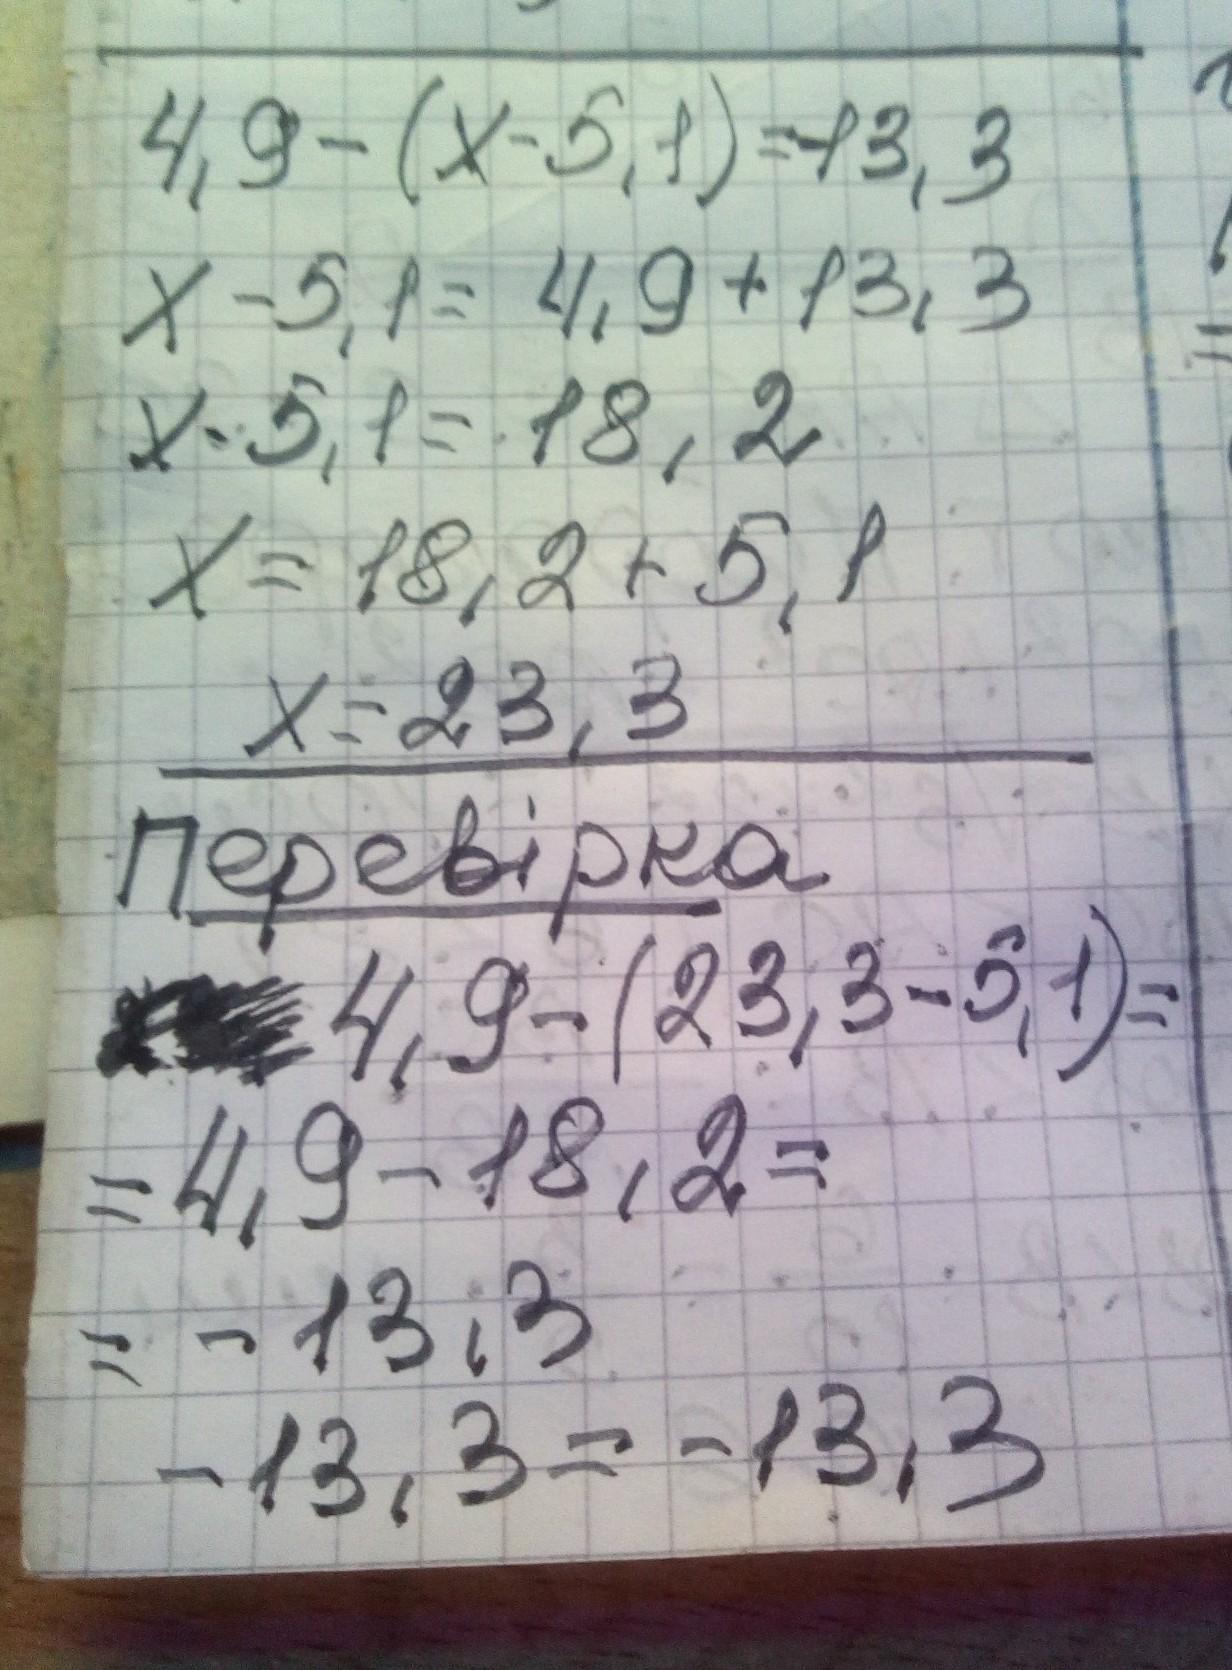 4,9-(x-5,1)=-13,3
x-5,1=4,9+13,3
x-5,1=18,2
x=18,2+5,1
x=23,3
Перевірка
4,9-(23,3-5,1)=
=4,9-18,2=
=-13,3
-13,3=-13,3